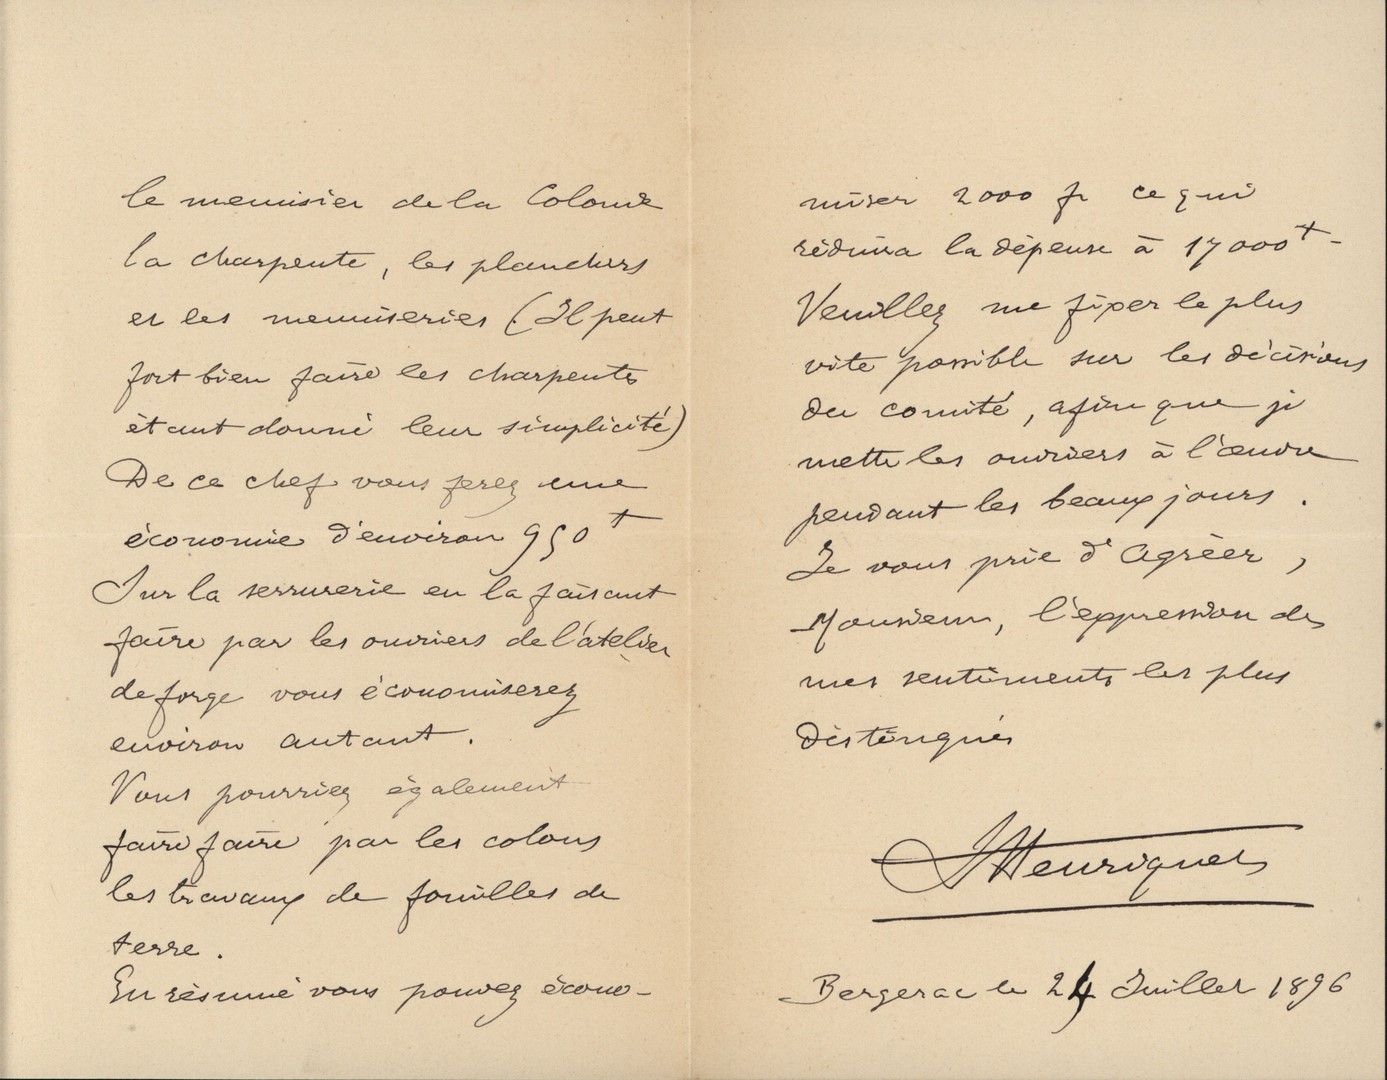 le menuisier de la Colonie
la charpente, les planchers
et les menuiseries (Il peut
fort bien faire les charpentes
étant donné leur simplicité)
De ce chef vous ferez une
économie d'environ 950 f
Sur la serrurerie en la faisant
faire par les ouvriers de l'atelier
de forge vous économiserez
environ autant.
Vous pourriez également
faire faire par les colons
les travaux de fouilles de
terre.
En résumé vous pouvez écono-
miser 2000 fr ce qui
réduira la dépense à 17000 f -
Veuillez me fixer le plus
vite possible sur les décisions
du comité, afin que je
mette les ouvriers à l'œuvre
pendant les beaux jours.
Je vous prie d'agréer,
Monsieur, l'expression de
mes sentiments les plus
distingués
Henriquet
Bergerac le 24 Juillet 1896